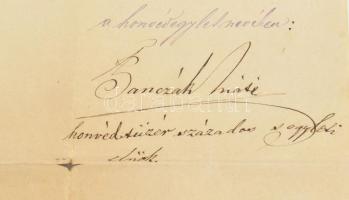 a honvédegylet nevében:
Banczák Máté
honvéd tüzér százados s egyleti
elnök.